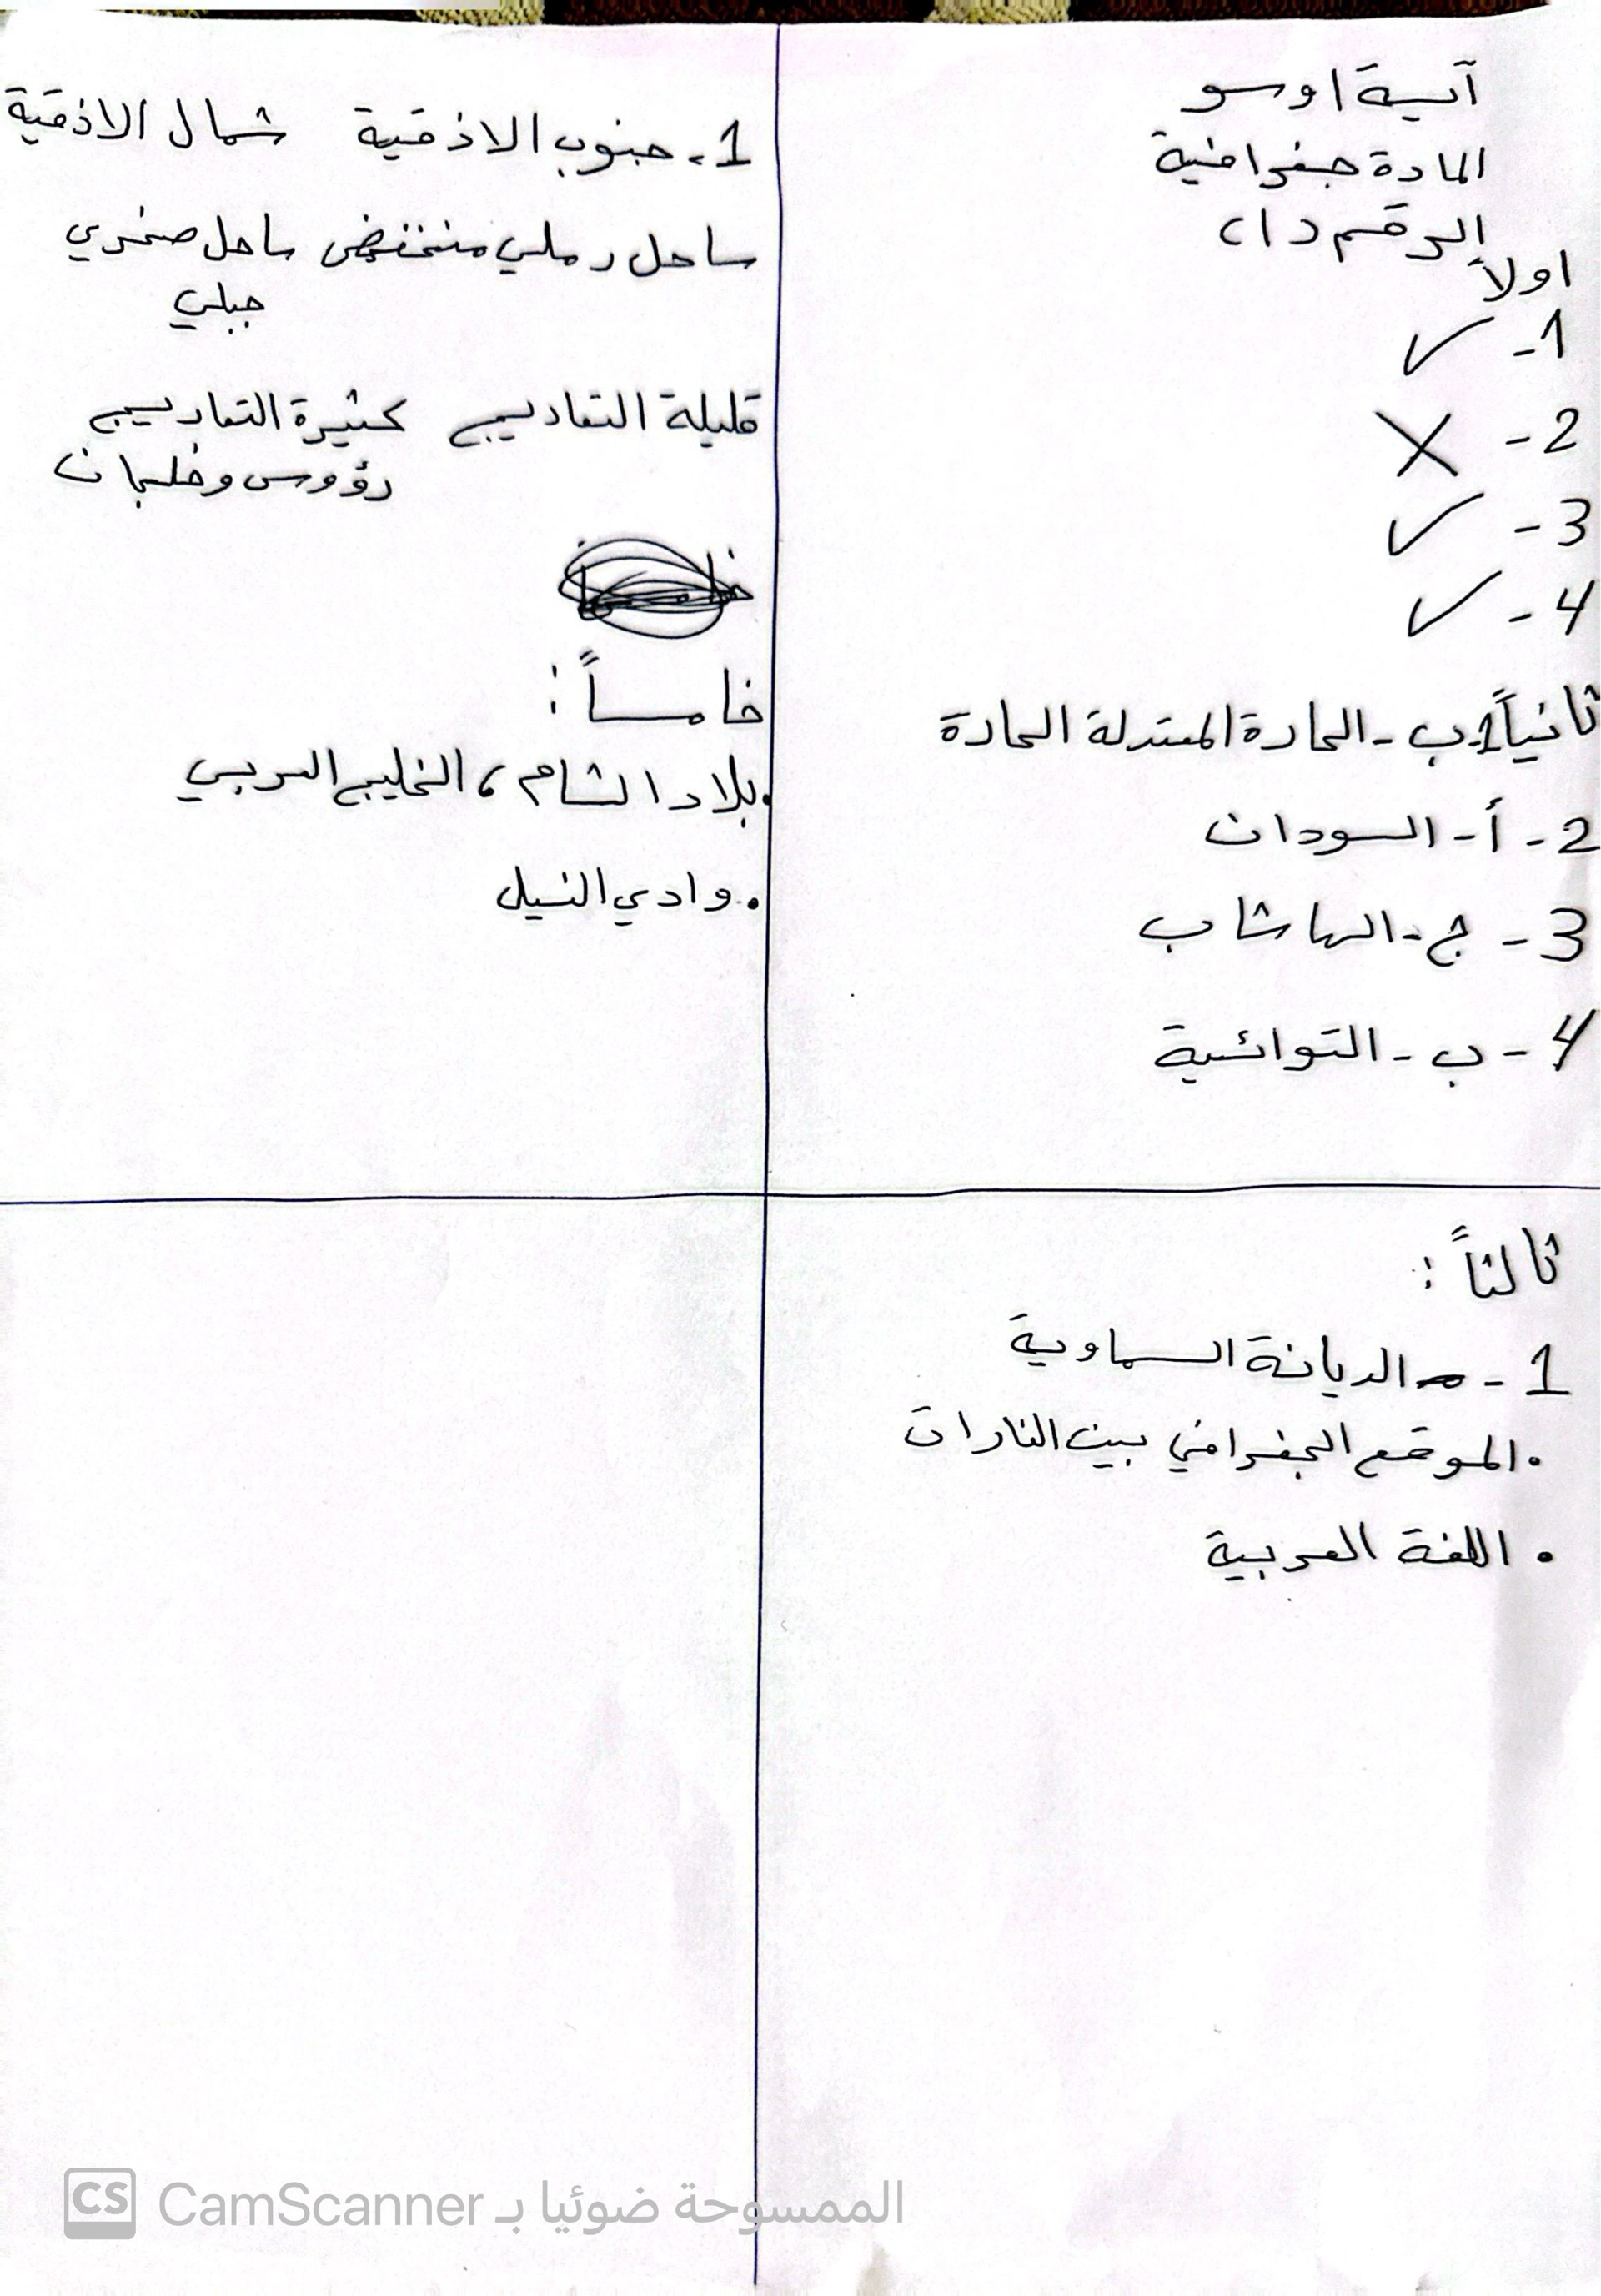 آسية اوسو
المادة جغرافية
الرقم د١٥
اولاً
1- ✓
2- X
3- ✓
4- ✓
ثانياً 1. ب - الحارة المعتدلة الحارة
2 - أ - السودان
3 - ج - الهاشاب
4 - ب - التوائية
ثالثاً :
1 - الديانة السماوية
. الموقع الجغرافي بين القارات
. اللغة العربية
1. جنوب الاذقية شمال الاذقية
ساحل رملي منخفض ساحل صخري
جبلي
قليلة التعاريج كثيرة التعاريج
رؤوس وخلجان
خامساً :
. بلاد الشام ، الخليج العربي
. وادي النيل
CS CamScanner الممسوحة ضوئيا بـ